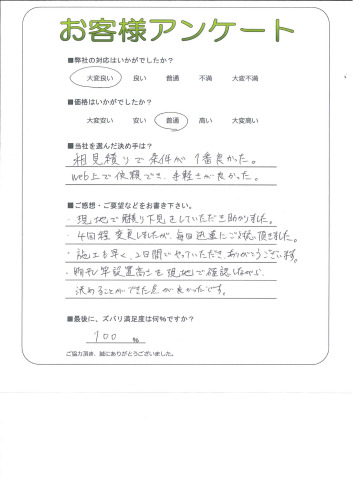 お客様アンケート
■弊社の対応はいかがでしたか?
大変良い 良い 普通 不満 大変不満
■価格はいかがでしたか?
大変安い 安い 普通 高い 大変高い
■当社を選んだ決め手は?
相見積りで条件が1番良かった。
web上で依頼でき、手軽さが良かった。
■ご感想・ご要望などをお書き下さい。
・現地で見積り下見をしていただき助かりました。
・4回程変更しましたが、毎回迅速にご対応頂きました。
・施工も早く、2日間でやっていただき、ありがとうございます。
・設置高さを現地で確認しながら、
決めることができた点が良かったです。
■最後に、ズバリ満足度は何%ですか?
100 %
ご協力頂き、誠にありがとうございました。